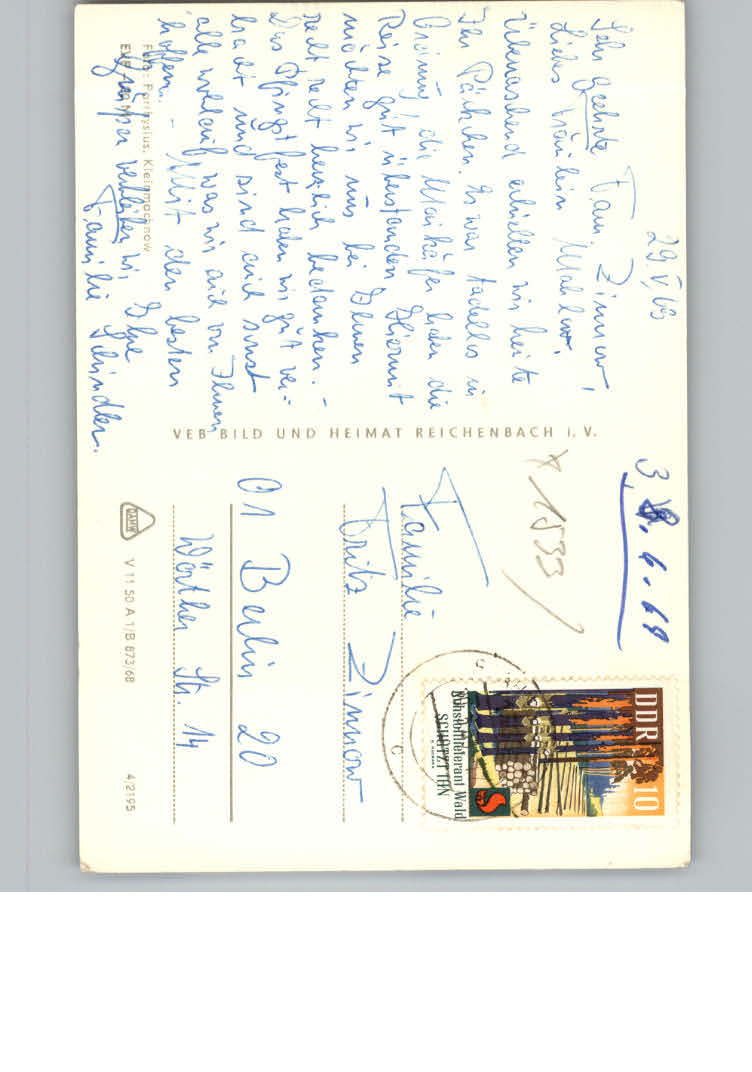 29.V.69
Sehr geehrte Fam. Zinnow!
Liebes Fräulein Mahlow!
Überraschend erhielten wir heute
Ihr Päckchen. Es war tadellos in
Ordnung, die Maikäfer haben die
Reise gut überstanden. Hiermit
möchten wir uns bei Ihnen
recht recht herzlich bedanken. -
Das Pfingstfest haben wir gut ver-
bracht und sind auch sonst
alle wohlauf was wir auch von Ihnen
hoffen. - Mit den besten
Grüßen verbleiben wir Ihre
Familie Schindler.
Foto: Parthysius, Kleinmachnow
VEB BILD UND HEIMAT REICHENBACH i. V.
3. 6. 69
* 1533/
DDR 10
Konsumlieferant Wald
SCHÜTZT IHN
Familie
Fritz Zinnow
01 Berlin 20
Wörther Str. 14
V 11 50 A 1/B 873/68
4/2195